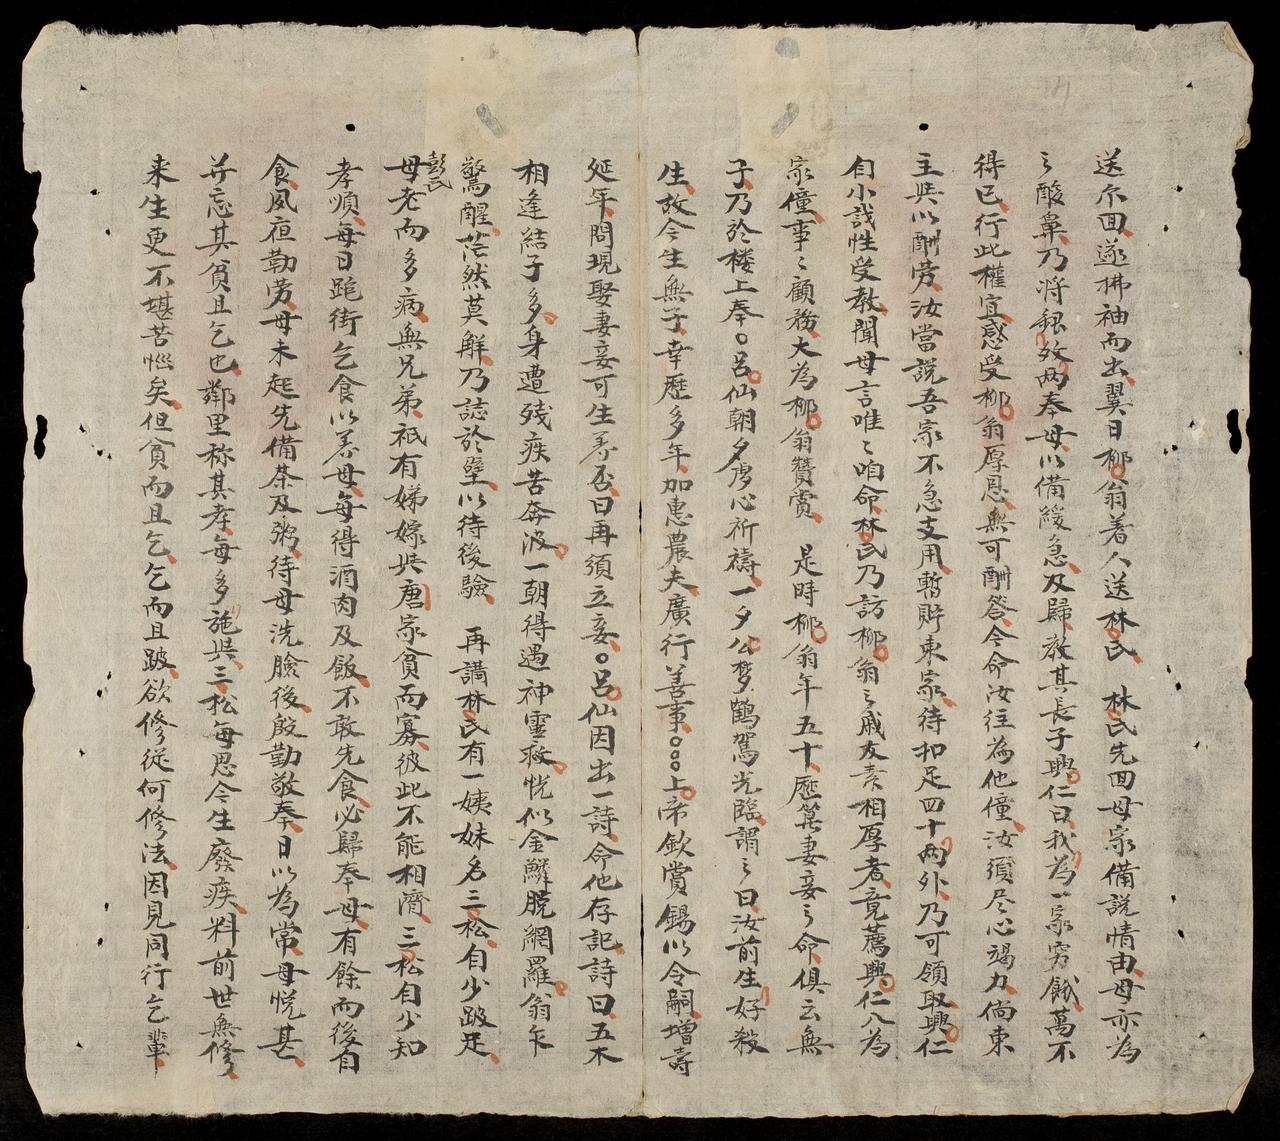 送尔回遂拂袖而出翼日柳翁着人送林氏　林氏先回母家备説情由母亦為
之酸鼻乃将銀数両奉母以備緩急及歸教其長子興仁曰我為一家窮餓萬不
得已行此權宜感受柳翁厚恩無可酬答今命汝往為他僮汝須尽心竭力倘東
主與以酬劳汝當説吾家不急支用暫貯東家待扣足四十両外乃可領取興仁
自小誠性受教聞母言唯〻咱命林氏乃訪柳翁之戚友素相厚者竟薦興仁入為
家僮事〻顧務大為柳翁贊賞　是時柳翁年五十歷箕妻妾之命俱云無
子乃於楼上奉呂仙朝夕虔心祈禱一夕公梦鶴駕光臨謂之曰汝前生好殺
生故今生無子幸歷多年加惠農夫廣行善事上帝欽賞錫以令嗣增壽
延年問現娶妻妾可生养否曰再須立妾呂仙因出一詩命他存記詩曰五木
相逢結子多身遭残疾苦奔波一朝得遇神靈救恍似金鱗脱網羅翁乍
驚醒茫然莫解乃誌於壁以待後驗　再講林氏有一姨妹名三松自少跛足
彭氏
母老而多病無兄弟祇有娣嫁與唐家貧而寡彼此不能相濟三松自少知
孝順每日跪街乞食以养母每得酒肉及飯不敢先食必歸奉母有餘而後自
食夙夜勤劳母未起先備茶及粥待母洗臉後殷勤敬奉日以為常母悦甚
并忘其貧且乞也鄰里称其孝每多施與三松每思今生廢疾料前世無修
来生更不堪苦惱矣但貧而且乞乞而且跛欲修從何修法因見同行乞輩